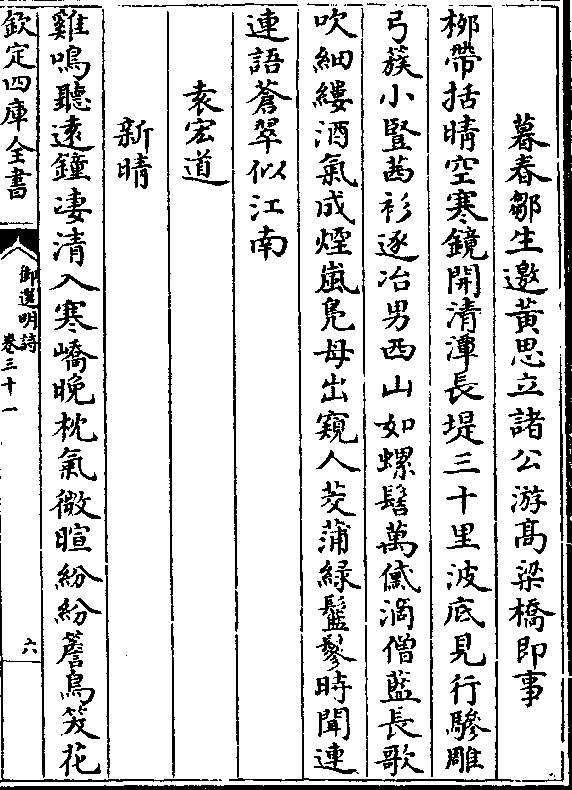 暮春鄒生邀黄思立諸公游髙梁橋即事
柳帶括晴空寒鏡開清潭長堤三十里波底見行驂雕
弓蔟小豎茜衫逐冶男西山如螺髻萬黛滴僧藍長歌
吹細縷酒氣成煙嵐鳬母出窺人茭蒲緑鬖時聞連
連語蒼翠似江南
袁宏道
新晴
雞鳴聽遠鐘凄清入寒嶠晚枕氣微暄紛紛簷鳥笑花
欽定四庫全書
御選明詩
卷三十一
六